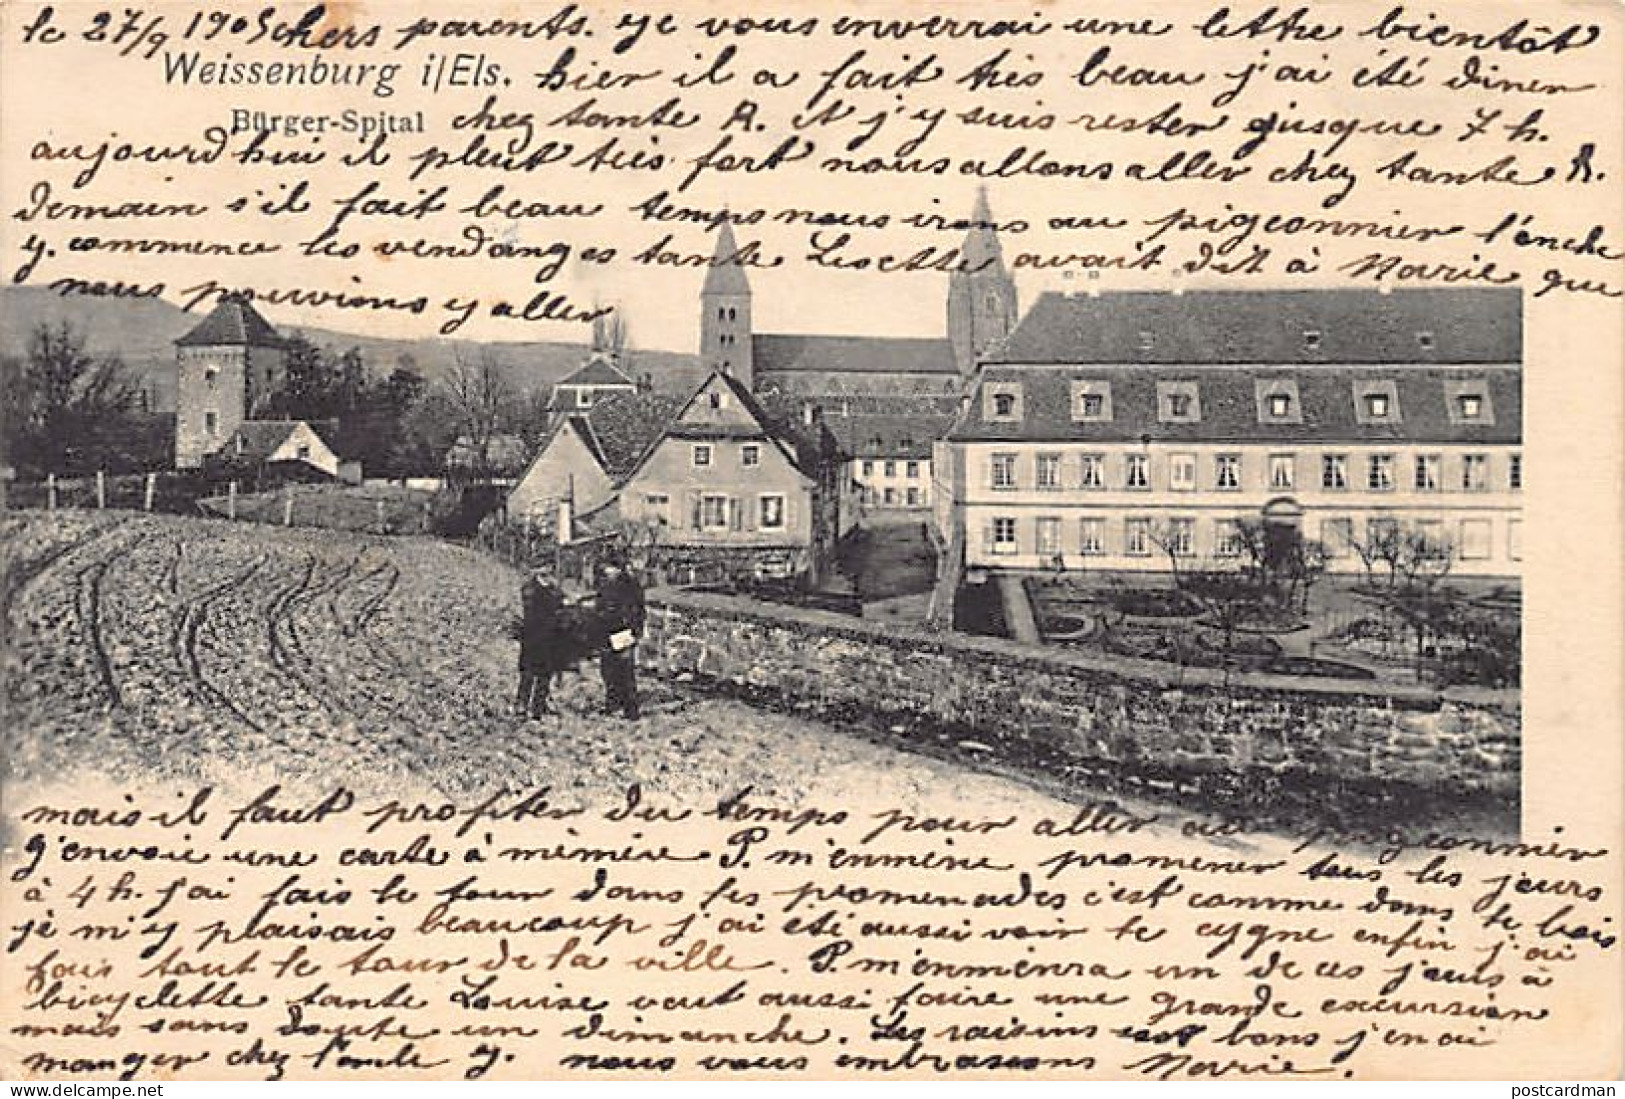 le 27/9 1905 chers parents. je vous enverrai une lettre bientôt
Weissenburg i/Els. hier il a fait très beau j'ai été diner
Bürger-Spital chez tante R. et j'y suis rester jusque 7 h.
aujourd'hui il pleut très fort nous allons aller chez tante R.
demain s'il fait beau temps nous irons au pigeonnier l'oncle
y. commence les vendanges tante avait dit à Marie que
nous pouvions y aller
mais il faut profiter du temps pour aller au pigeonnier
j'envoie une carte à mémère P. m'enmène promener tous les jours
à 4 h. j'ai fais le tour dans les promenades c'est comme dans le bois
je m'y plaisais beaucoup j'ai été aussi voir le cygne enfin j'ai
fais tout le tour de la ville. P. m'enmènera un de ces jours à
bicyclette tante Louise veut aussi faire une grande excursion
mais sans doute un dimanche. Les raisins sont bons j'en ai
manger chez l'oncle y. nous vous embrassons Marie.
postcardman